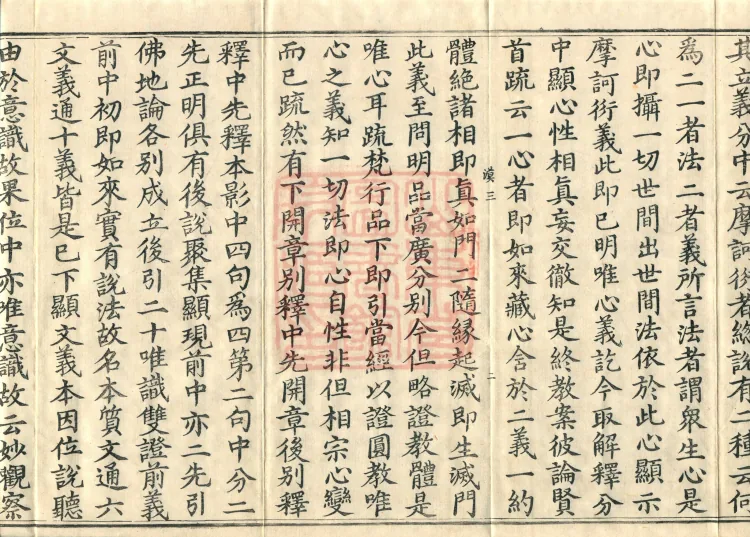 其立義分中云摩訶衍者總說有二種云何
為二一者法二者義所言法者謂衆生心是
心即攝一切世間出世間法依於此心顯示
摩訶衍義此即已明唯心義訖今取解釋分
中顯心性相眞妄交徹知是終教案彼論賢
首疏云一心者即如來藏心含於二義一約
體絕諸相即眞如門二隨緣起滅即生滅門
漢三
二
此義至問明品當廣分別今但略證教體是
唯心耳疏梵行品下即引當經以證圓教唯
心之義知一切法即心自性非但相宗心變
而已疏然有下開章別釋中先開章後別釋
釋中先釋本影中四句爲四第二句中分二
先正明俱有後說聚集顯現前中亦二先引
佛地論各別成立後引二十唯識雙證前義
前中初即如來實有說法故名本質文通六
文義通十義皆是已下顯文義本因位說聽
由於意識故果位中亦唯意識故云妙觀察